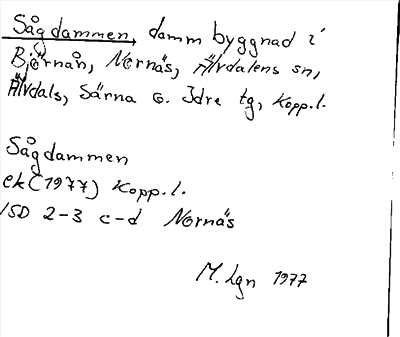 Sågdammen, damm byggnad i
Björnån, Nornäs, Älvdalens sn,
Älvdals, Särna o. Idre tg, Kopp.l.
Sågdammen
ek (1977) Kopp.l.
15D 2-3 c-d Nornäs
M. Lgn 1977